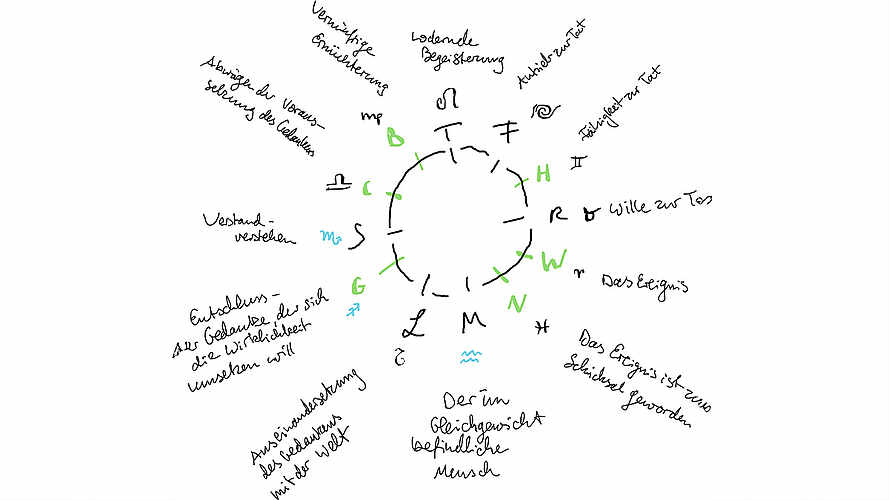 Lodernde
Begeisterung
♌
T
Antrieb zur Tat
F
Fähigkeit zur Tat
♊
H
Wille zur Tat
♉
R
Das Ereignis
♈
W
Das Ereignis ist zum
Schicksal geworden
♓
N
Der im
Gleichgewicht
befindliche
Mensch
♒
M
Auseinandersetzung
des Gedankens
mit der Welt
L
Entschluss -
der Gedanke, der sich
die Wirklichkeit
umsetzen will
♐
G
Verstand -
verstehen
♏
S
Abwägen der Voraus-
setzung des Gedankens
♎
C
Vernünftige
Ernüchterung
♍
B